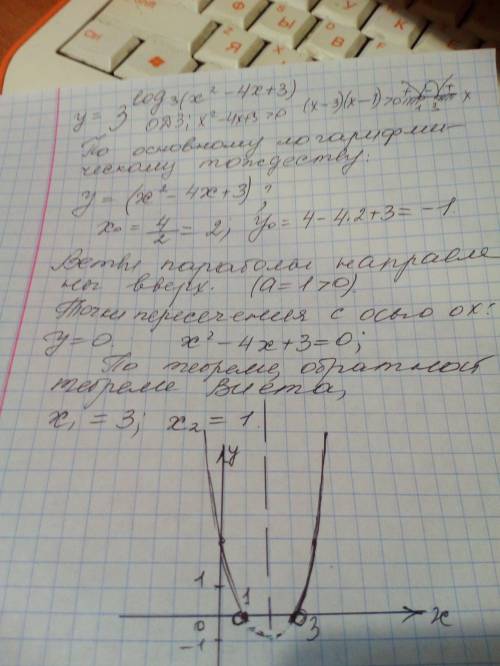 y = 3^log₃(x² - 4x + 3)
ОДЗ; x² - 4x + 3 > 0 (x - 3)(x - 1) > 0 + - + 1 3 x
По основному логарифми-
ческому тождеству:
y = (x² - 4x + 3);
x₀ = 4/2 = 2; y₀ = 4 - 4·2 + 3 = -1.
Ветви параболы направле
ны вверх. (a = 1 > 0)
Точки пересечения с осью ох:
y = 0. x² - 4x + 3 = 0;
По теореме, обратной
теореме Виета,
x₁ = 3; x₂ = 1.
y
1
1
0
3
x
-1